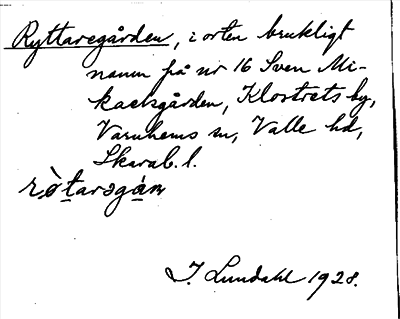 Ryttaregården, i orten brukligt
namn på nr 16 Sven Mi-
kaelsgården, Klostrets by,
Varnhems sn, Valle hd,
Skarab. l.
I. Lundahl 1928.